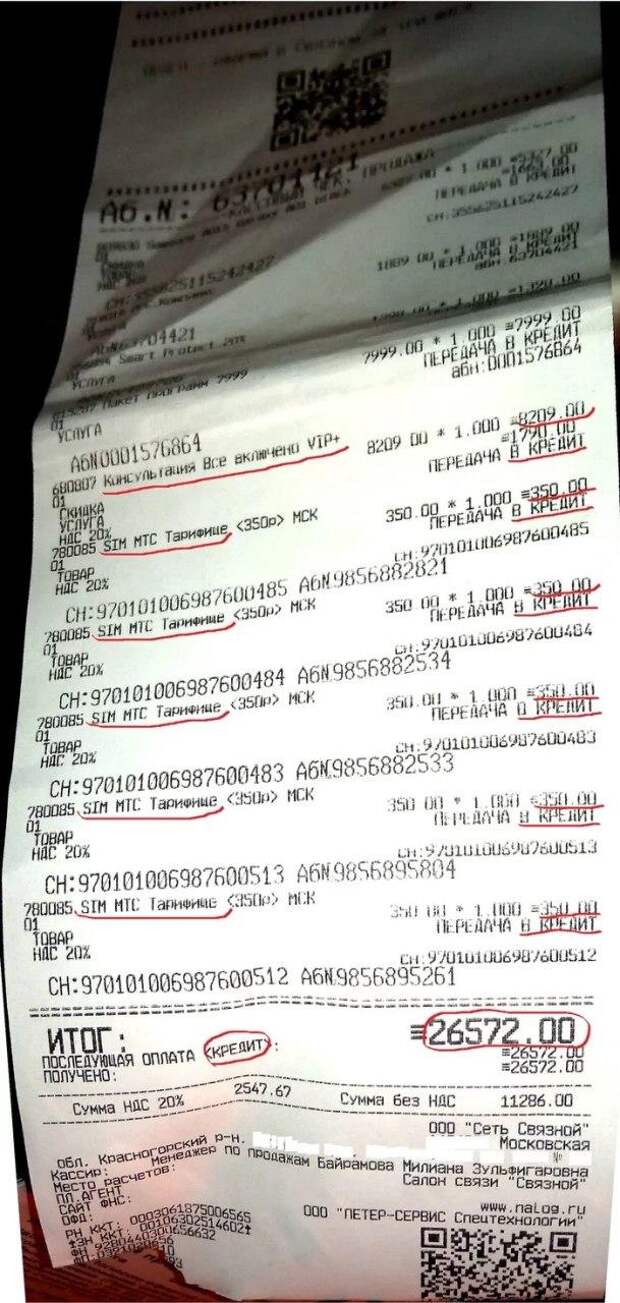 Аб.N: 63701121
КАССОВЫЙ ЧЕК. ПРОДАЖА
ПЕРЕДАЧА В КРЕДИТ
СН:355625115242427
01
Скидка
ТОВАР
1889 00 * 1.000 ≡1889.00
ПЕРЕДАЧА В КРЕДИТ
абн:63704421
СН:355625115242427
Smart Protect
УСЛУГА
Пакет программ 7999
7999.00 * 1.000 ≡7999.00
01
ПЕРЕДАЧА В КРЕДИТ
УСЛУГА
абн:0001576864
АбN0001576864
680807 Консультация Все включено VIP+
8209 00 * 1.000 ≡8209.00
01
≡1790.00
СКИДКА
ПЕРЕДАЧА В КРЕДИТ
УСЛУГА
НДС 20%
780085 SIM МТС Тарифище <350р> МСК
350.00 * 1.000 ≡350.00
01
ПЕРЕДАЧА В КРЕДИТ
ТОВАР
НДС 20%
СН:970101006987600485
СН:970101006987600485 АбN9856882821
780085 SIM МТС Тарифище <350р> МСК
350 00 * 1.000 ≡350.00
01
ПЕРЕДАЧА В КРЕДИТ
ТОВАР
НДС 20%
СН:970101006987600484
СН:970101006987600484 АбN9856882534
780085 SIM МТС Тарифище <350р> МСК
350.00 * 1.000 ≡350.00
01
ПЕРЕДАЧА В КРЕДИТ
ТОВАР
НДС 20%
СН:970101006987600483
СН:970101006987600483 АбN9856882533
780085 SIM МТС Тарифище <350р> МСК
350 00 * 1.000 ≡350.00
01
ПЕРЕДАЧА В КРЕДИТ
ТОВАР
НДС 20%
СН:970101006987600513
СН:970101006987600513 АбN9856895804
780085 SIM МТС Тарифище <350р> МСК
350 00 * 1.000 ≡350.00
01
ПЕРЕДАЧА В КРЕДИТ
ТОВАР
НДС 20%
СН:970101006987600512
СН:970101006987600512 АбN9856895261
ИТОГ: ≡26572.00
ПОСЛЕДУЮЩАЯ ОПЛАТА <КРЕДИТ>: ≡26572.00
ПОЛУЧЕНО: ≡26572.00
Сумма НДС 20% 2547.67 Сумма без НДС 11286.00
ООО "Сеть Связной"
Московская
обл. Красногорский р-н. №
Кассир: Менеджер по продажам Байрамова Милиана Зульфигаровна
Место расчетов: Салон связи "Связной"
ПЛ.АГЕНТ
САЙТ ФНС: www.nalog.ru
ОФД: ООО "ПЕТЕР-СЕРВИС Спецтехнологии"
РН ККТ: 0003061875006565
ЗН ККТ: 00106302514602
ФН 9280440300656632